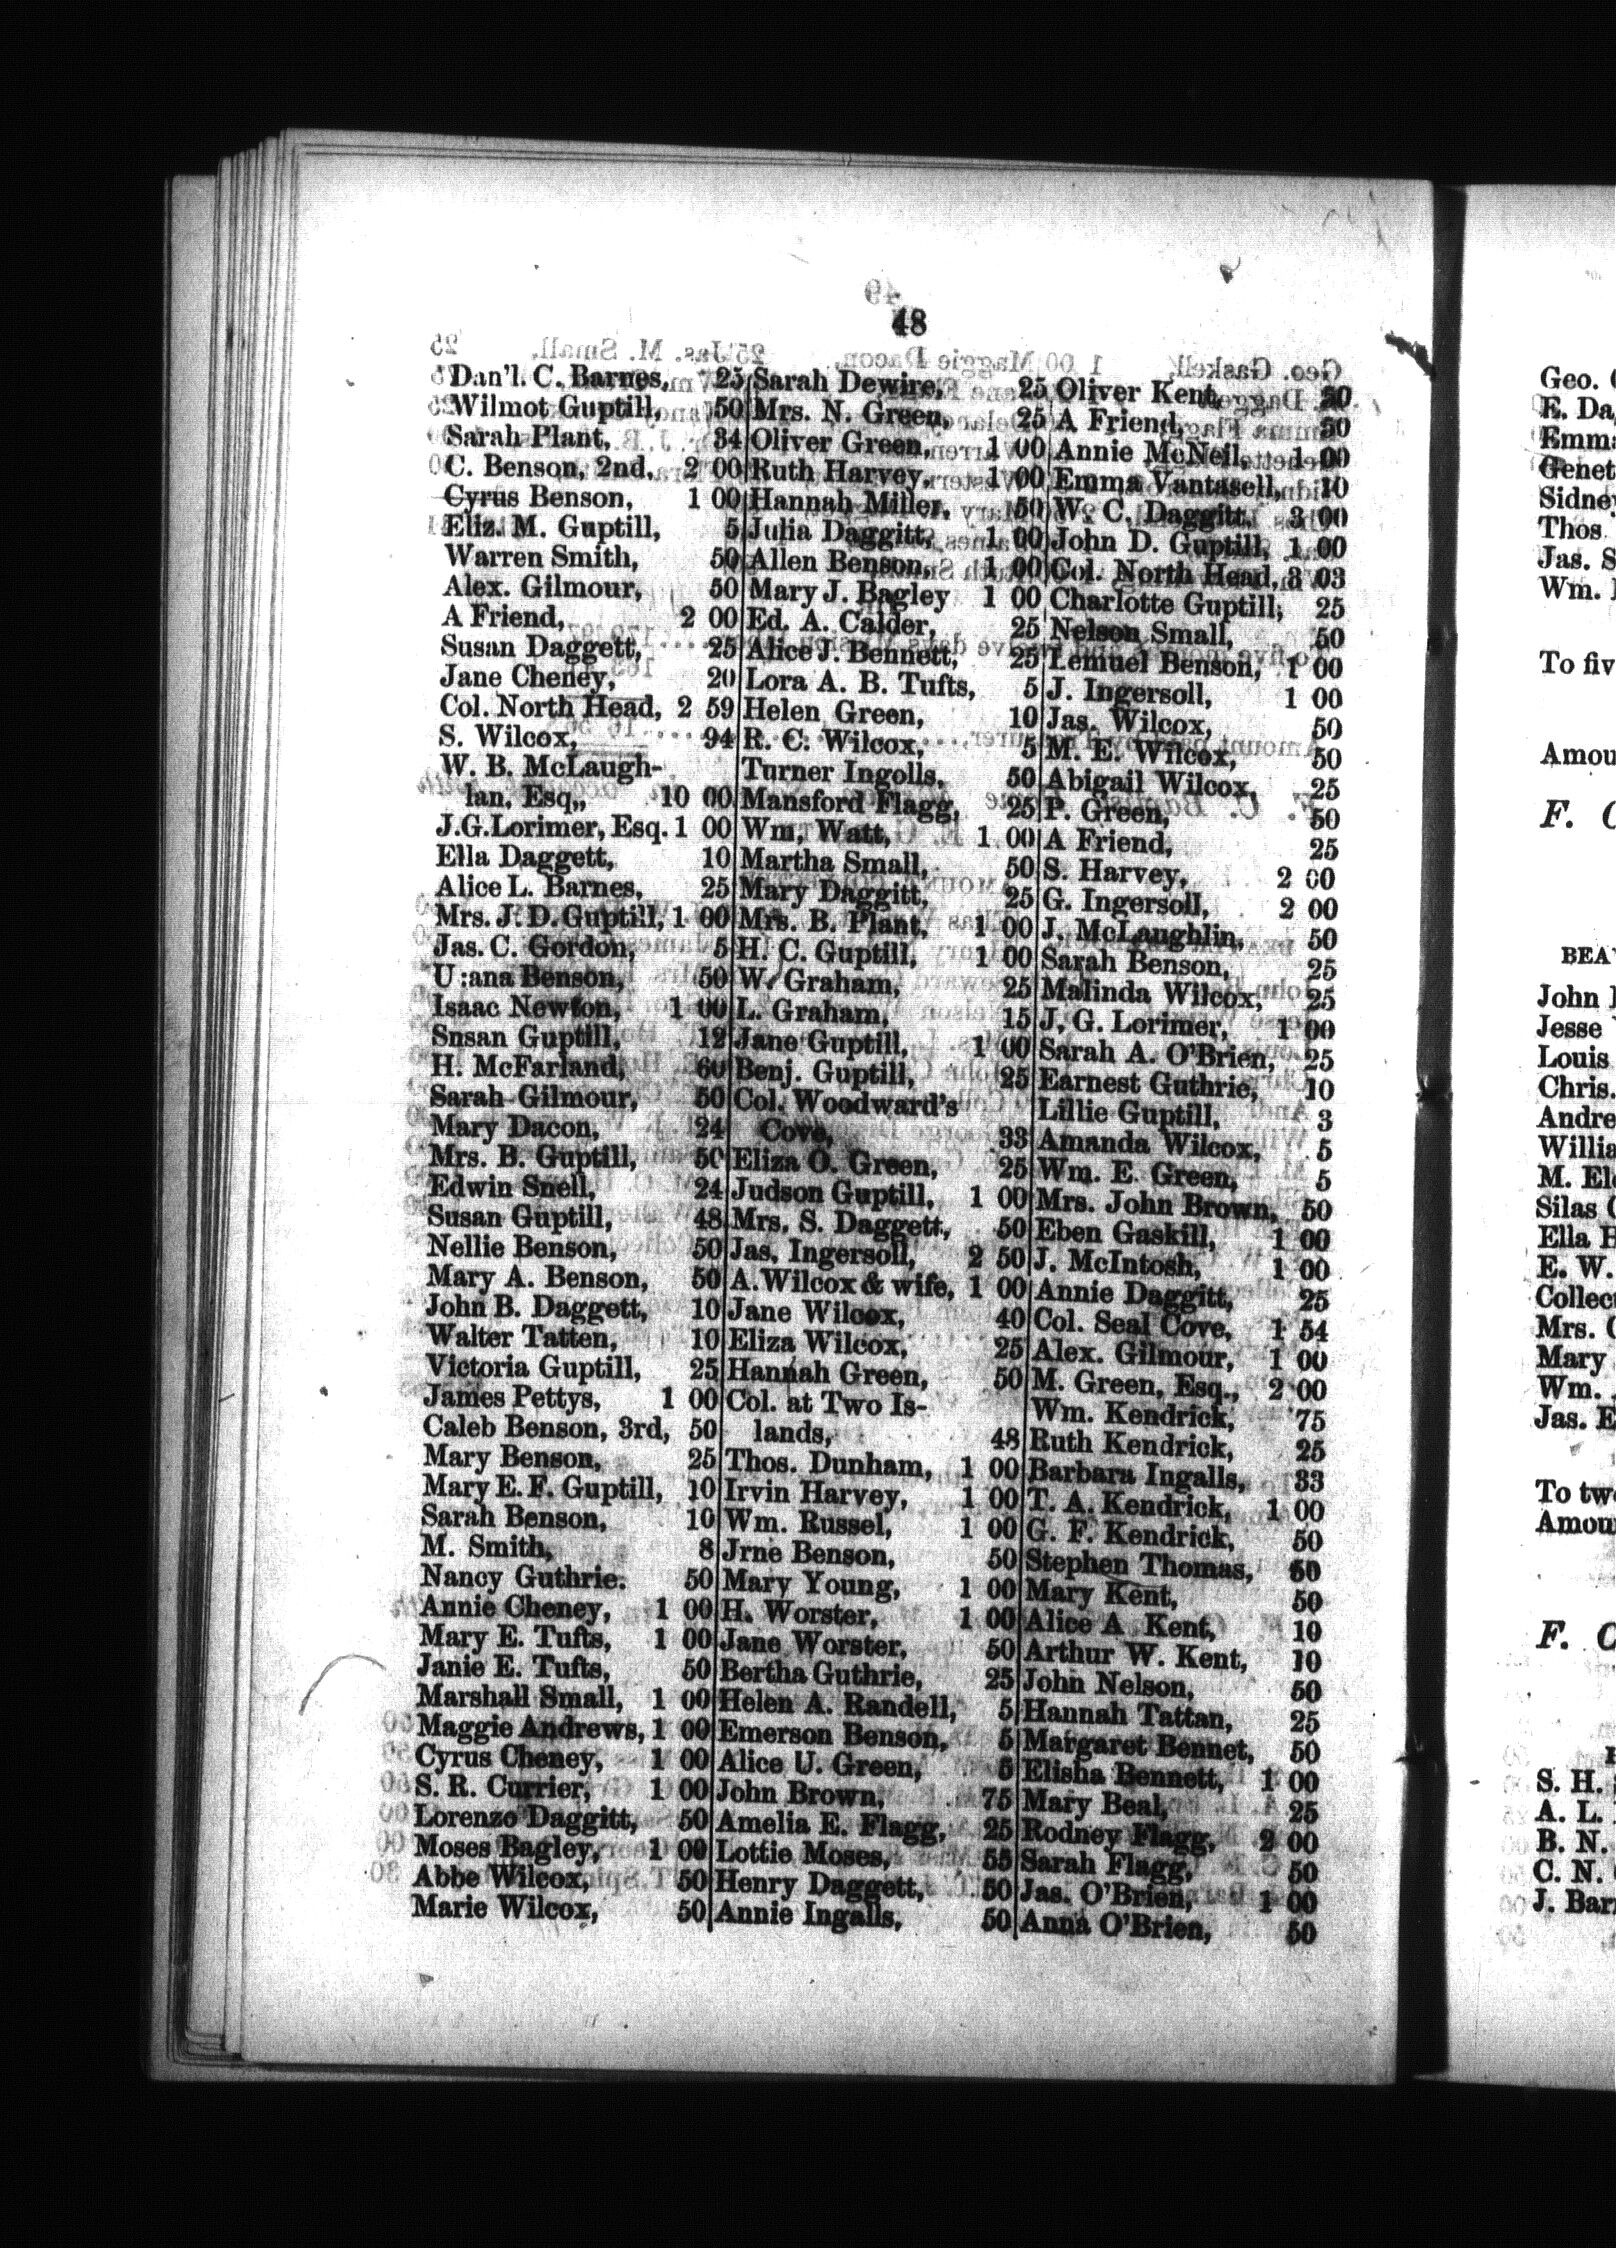 48
Dan'l. C. Barnes, 25
Wilmot Guptill, 50
Sarah Plant, 34
C. Benson, 2nd, 2 00
Cyrus Benson, 1 00
Eliz. M. Guptill, 5
Warren Smith, 50
Alex. Gilmour, 50
A Friend, 2 00
Susan Daggett, 25
Jane Cheney, 20
Col. North Head, 2 59
S. Wilcox, 94
W. B. McLaugh-
lan, Esq,, 10 00
J.G.Lorimer, Esq. 1 00
Ella Daggett, 10
Alice L. Barnes, 25
Mrs. J. D. Guptill, 1 00
Jas. C. Gordon, 5
U:ana Benson, 50
Isaac Newton, 1 00
Snsan Guptill, 12
H. McFarland, 60
Sarah Gilmour, 50
Mary Dacon, 24
Mrs. B. Guptill, 50
Edwin Snell, 24
Susan Guptill, 48
Nellie Benson, 50
Mary A. Benson, 50
John B. Daggett, 10
Walter Tatten, 10
Victoria Guptill, 25
James Pettys, 1 00
Caleb Benson, 3rd, 50
Mary Benson, 25
Mary E. F. Guptill, 10
Sarah Benson, 10
M. Smith, 8
Nancy Guthrie. 50
Annie Cheney, 1 00
Mary E. Tufts, 1 00
Janie E. Tufts, 50
Marshall Small, 1 00
Maggie Andrews, 1 00
Cyrus Cheney, 1 00
S. R. Currier, 1 00
Lorenzo Daggitt, 50
Moses Bagley, 1 00
Abbe Wilcox, 50
Marie Wilcox, 50
Sarah Dewire, 25
Mrs. N. Green, 25
Oliver Green, 1 00
Ruth Harvey, 1 00
Hannah Miller, 50
Julia Daggitt, 1 00
Allen Benson, 1 00
Mary J. Bagley 1 00
Ed. A. Calder, 25
Alice J. Bennett, 25
Lora A. B. Tufts, 5
Helen Green, 10
R. C. Wilcox, 5
Turner Ingolls, 50
Mansford Flagg, 25
Wm, Watt, 1 00
Martha Small, 50
Mary Daggitt, 25
Mrs. B. Plant, 1 00
H. C. Guptill, 1 00
W. Graham, 25
L. Graham, 15
Jane Guptill, 1 00
Benj. Guptill, 25
Col. Woodward's
Cove, 33
Eliza O. Green, 25
Judson Guptill, 1 00
Mrs. S. Daggett, 50
Jas. Ingersoll, 2 50
A. Wilcox & wife, 1 00
Jane Wilcox, 40
Eliza Wilcox, 25
Hannah Green, 50
Col. at Two Is-
lands, 48
Thos. Dunham, 1 00
Irvin Harvey, 1 00
Wm. Russel, 1 00
Jrne Benson, 50
Mary Young, 1 00
H. Worster, 1 00
Jane Worster, 50
Bertha Guthrie, 25
Helen A. Randell, 5
Emerson Benson, 5
Alice U. Green, 5
John Brown, 75
Amelia E. Flagg, 25
Lottie Moses, 55
Henry Daggett, 50
Annie Ingalls, 50
Oliver Kent, 50
A Friend, 50
Annie McNeil, 1 00
Emma Vantasell, 10
W. C. Daggitt, 3 00
John D. Guptill, 1 00
Col. North Head, 3 03
Charlotte Guptill, 25
Nelson Small, 50
Lemuel Benson, 1 00
J. Ingersoll, 1 00
Jas. Wilcox, 50
M. E. Wilcox, 50
Abigail Wilcox, 25
P. Green, 50
A Friend, 25
S. Harvey, 2 00
G. Ingersoll, 2 00
J. McLaughlin, 50
Sarah Benson, 25
Malinda Wilcox, 25
J, G. Lorimer, 1 00
Sarah A. O'Brien, 25
Earnest Guthrie, 10
Lillie Guptill, 3
Amanda Wilcox, 5
Wm. E. Green, 5
Mrs. John Brown, 50
Eben Gaskill, 1 00
J. McIntosh, 1 00
Annie Daggitt, 25
Col. Seal Cove, 1 54
Alex. Gilmour, 1 00
M. Green, Esq., 2 00
Wm. Kendrick, 75
Ruth Kendrick, 25
Barbara Ingalls, 33
T. A. Kendrick, 1 00
G. F. Kendrick, 50
Stephen Thomas, 50
Mary Kent, 50
Alice A. Kent, 10
Arthur W. Kent, 10
John Nelson, 50
Hannah Tattan, 25
Margaret Bennet, 50
Elisha Bennett, 1 00
Mary Beal, 25
Rodney Flagg, 2 00
Sarah Flagg, 50
Jas. O'Brien, 1 00
Anna O'Brien, 50
Geo.
E. Da
Emma
Genet
Sidney
Thos
Jas. S
Wm.
To fiv
Amou
F. C
BEA
John
Jesse
Louis
Chris.
Andre
Willia
M. El
Silas
Ella H
E. W.
Collec
Mrs.
Mary
Wm.
Jas. E
To tw
Amou
F. C
S. H.
A. L.
B. N.
C. N.
J. Bar